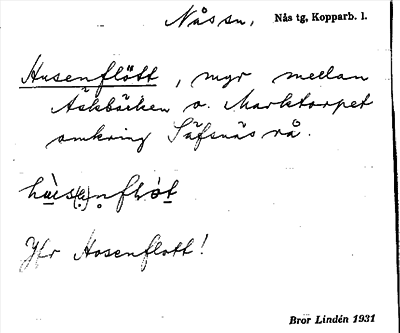 Nås sn. Nås tg, Kopparb. l.
Husenflött, myr mellan
Äskbäcken o. Marktorpet
omkring Säfsnäs rå.
Jfr Hosenflott!
Bror Lindén 1931